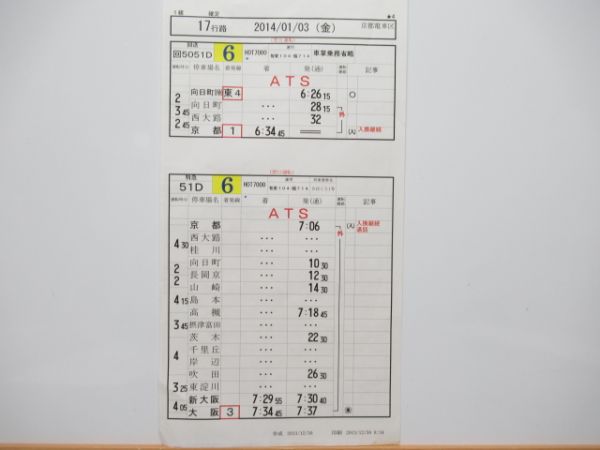 1様 確定 ★4
17行路 2014/01/03 (金) 京都電車区
回送
回5051D 6 HOT7000 車掌乗務省略
停車場名 着発線 着 発(通) 記事
ATS
向日町操 東4 6:26 15 〇
2
向日町 ... 28 15
3 45
西大路 ... 32 外
2 45
京都 1 6:34 45 ═ (入) 入換継続
特急
51D 6 HOT7000
停車場名 着発線 着 発(通) 記事
ATS
京都 7:06 (入) 入換継続
西大路 ... ... 外
4 30
桂川 ... ...
向日町 ... 10 30
2
長岡京 ... 12 30
2
山崎 ... 14 30
4 15 島本 ... ...
高槻 ... 7:18 45
3 45 摂津富田 ... ...
茨木 ... 22 30
千里丘 ... ...
4
岸辺 ... ...
吹田 ... 26 30
3 25 東淀川 ... ...
新大阪 7:29 55 7:30 40
4 05
大阪 3 7:34 45 7:37
作成 2013/12/30 印刷 2013/12/30